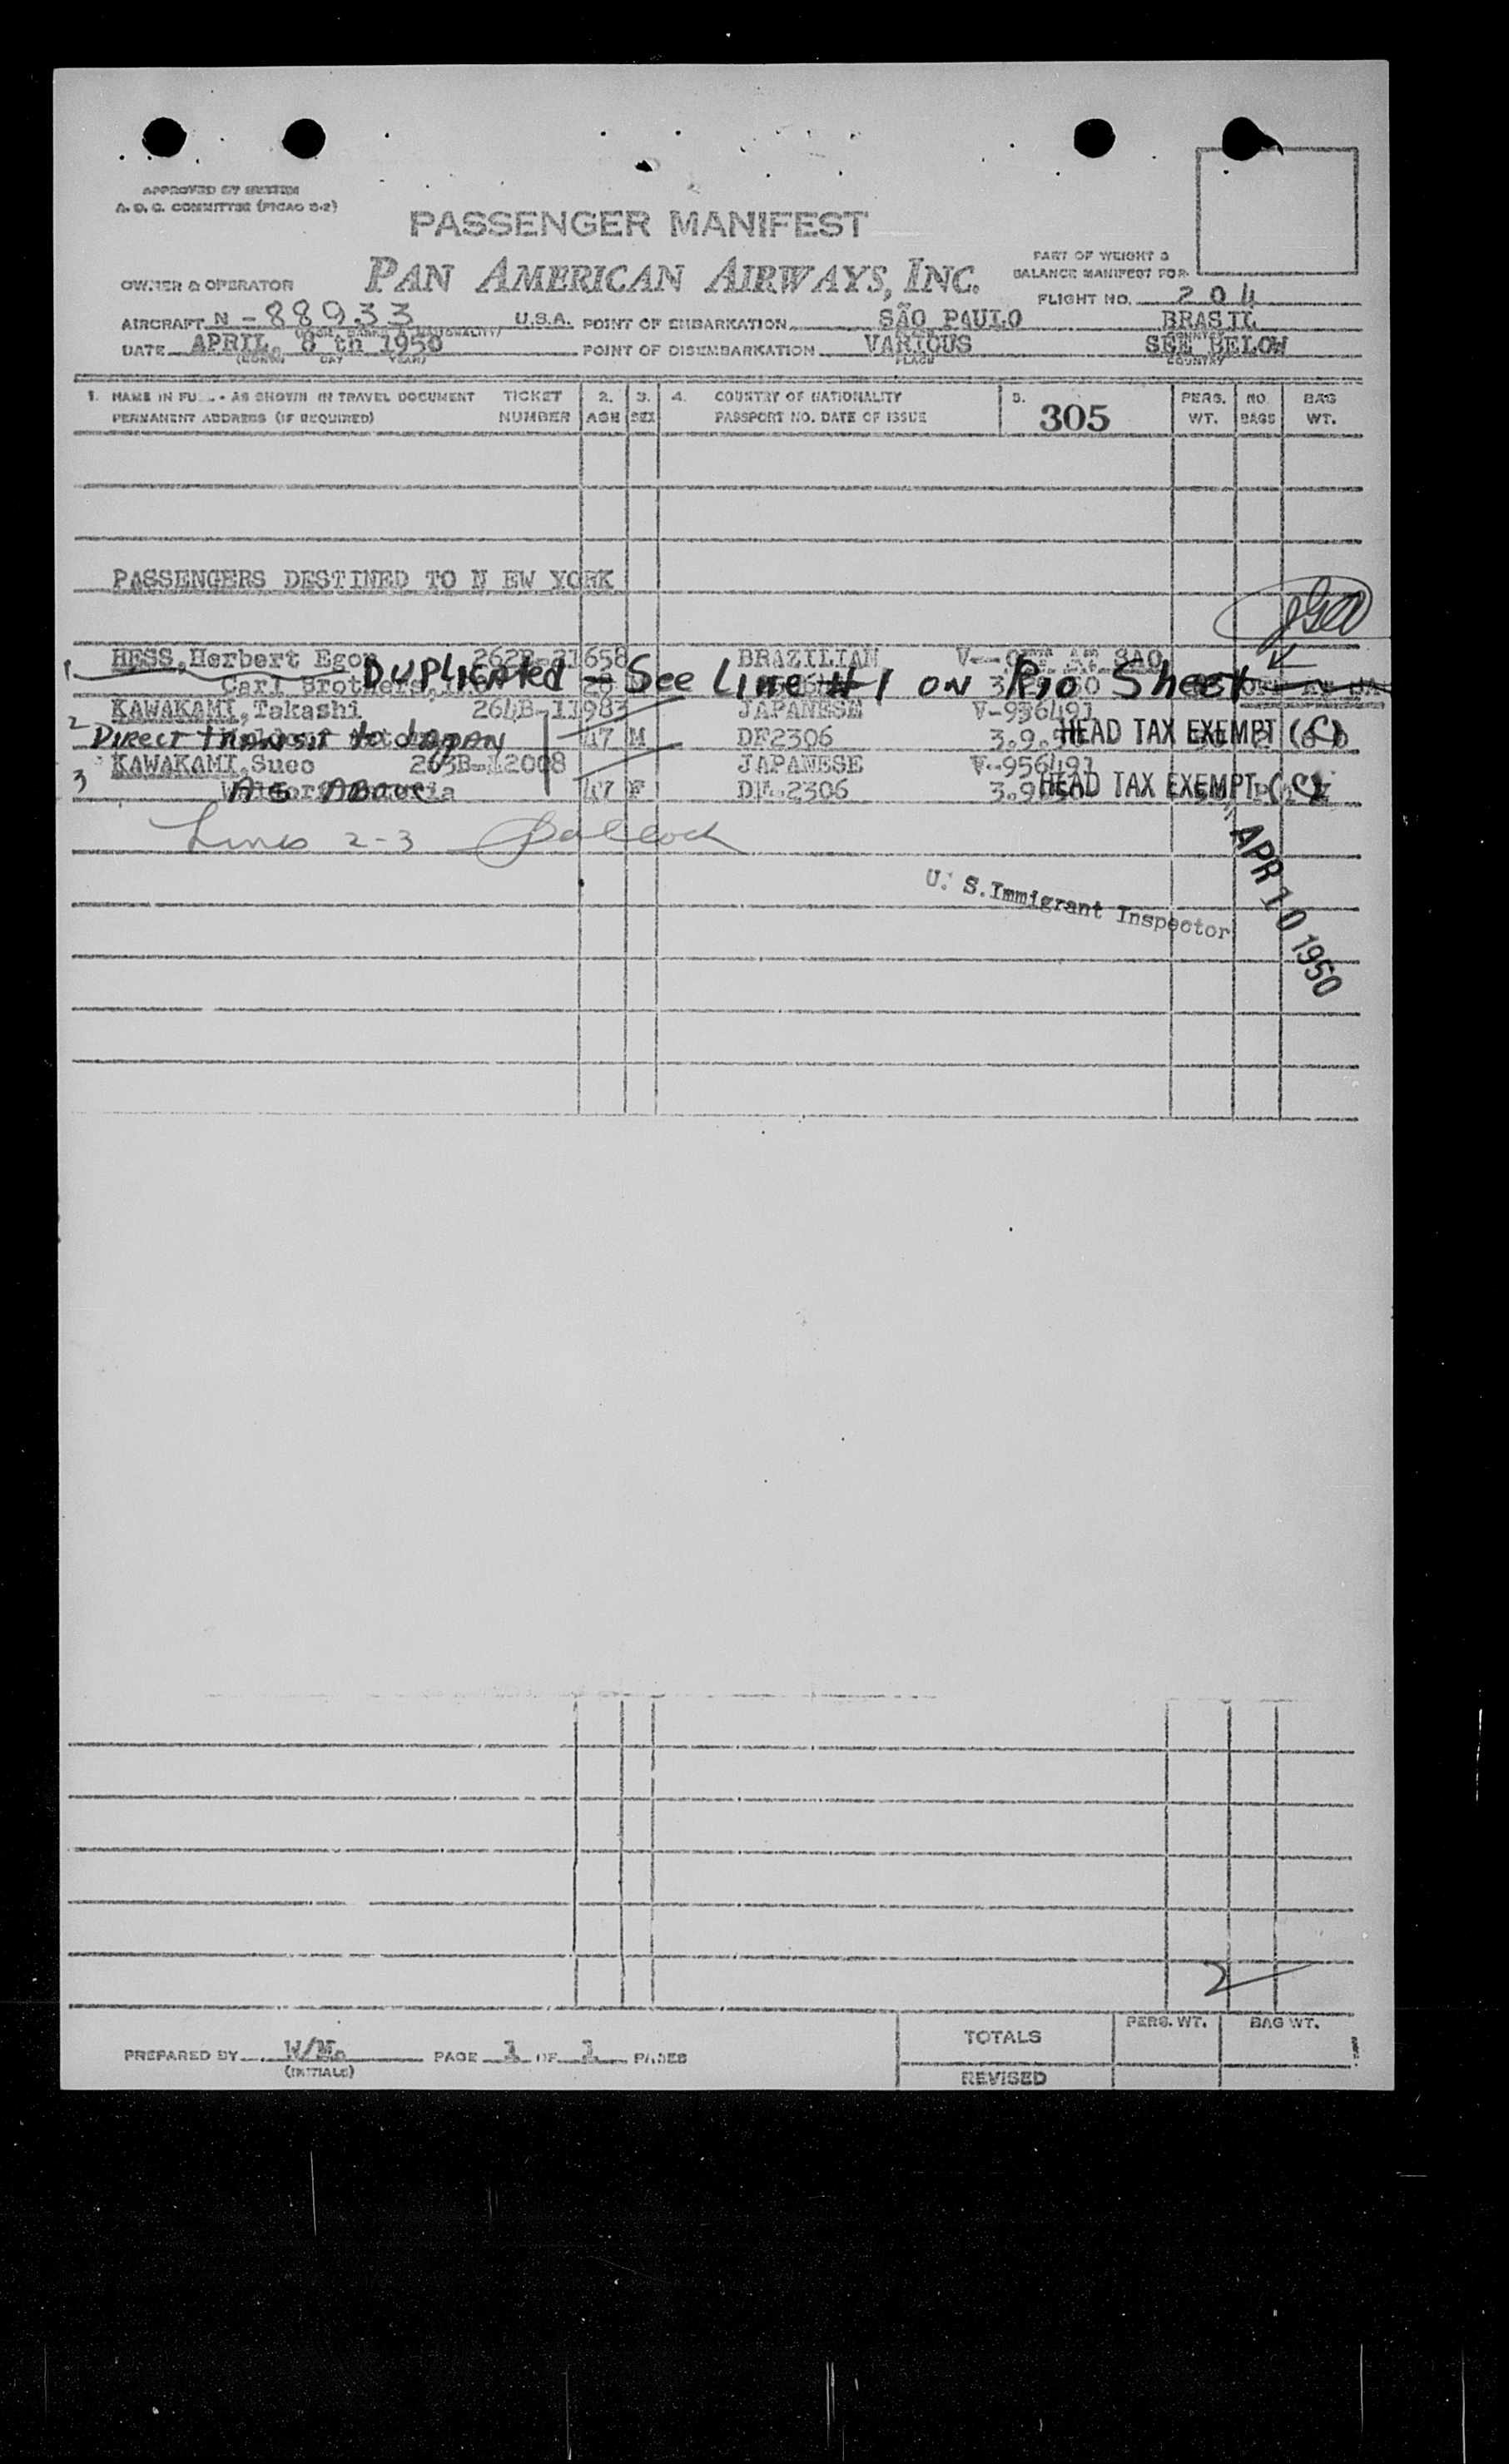 APPROVED BY
A. O. C. COMMITTEE (PICAO 5-2)
PASSENGER MANIFEST
PAN AMERICAN AIRWAYS, INC.
PART OF WEIGHT &
BALANCE MANIFEST FOR
OWNER & OPERATOR
FLIGHT NO. 204
AIRCRAFT N-88933 U.S.A. POINT OF EMBARKATION SÃO PAULO BRASIL
DATE APRIL, 8 th 1950 POINT OF DISEMBARKATION VARIOUS SEE BELOW
(MONTH DAY YEAR) PLACE COUNTRY
1. NAME IN FU - AS SHOWN IN TRAVEL DOCUMENT TICKET 2. 3. 4. COUNTRY OF NATIONALITY 5. 305 PERS. NO. BAG
PERMANENT ADDRESS (IF REQUIRED) NUMBER AGE SEX PASSPORT NO. DATE OF ISSUE WT. BAGS WT.
PASSENGERS DESTINED TO N EW YORK
1 HESS, Herbert Egon 262B-21658 BRAZILIAN V-- SAO
Carl Brothers,
Duplicated - See Line #1 on Rio Sheet
KAWAKAMI, Takashi 264B-11983 JAPANESE V-956491
2 Direct transit to Japan 47 M DF2306 3.9. HEAD TAX EXEMPT (C)
KAWAKAMI, Sueo 263B-12008 JAPANESE V--956491
3 As Above 47 F 2306 3.9 HEAD TAX EXEMPT (C)
Lines 2-3
U. S. Immigrant Inspector
APR 10 1950
2
PREPARED BY W/M. PAGE 1 OF 1 PAGES
(INITIALS)
TOTALS PERS. WT. BAG WT.
REVISED